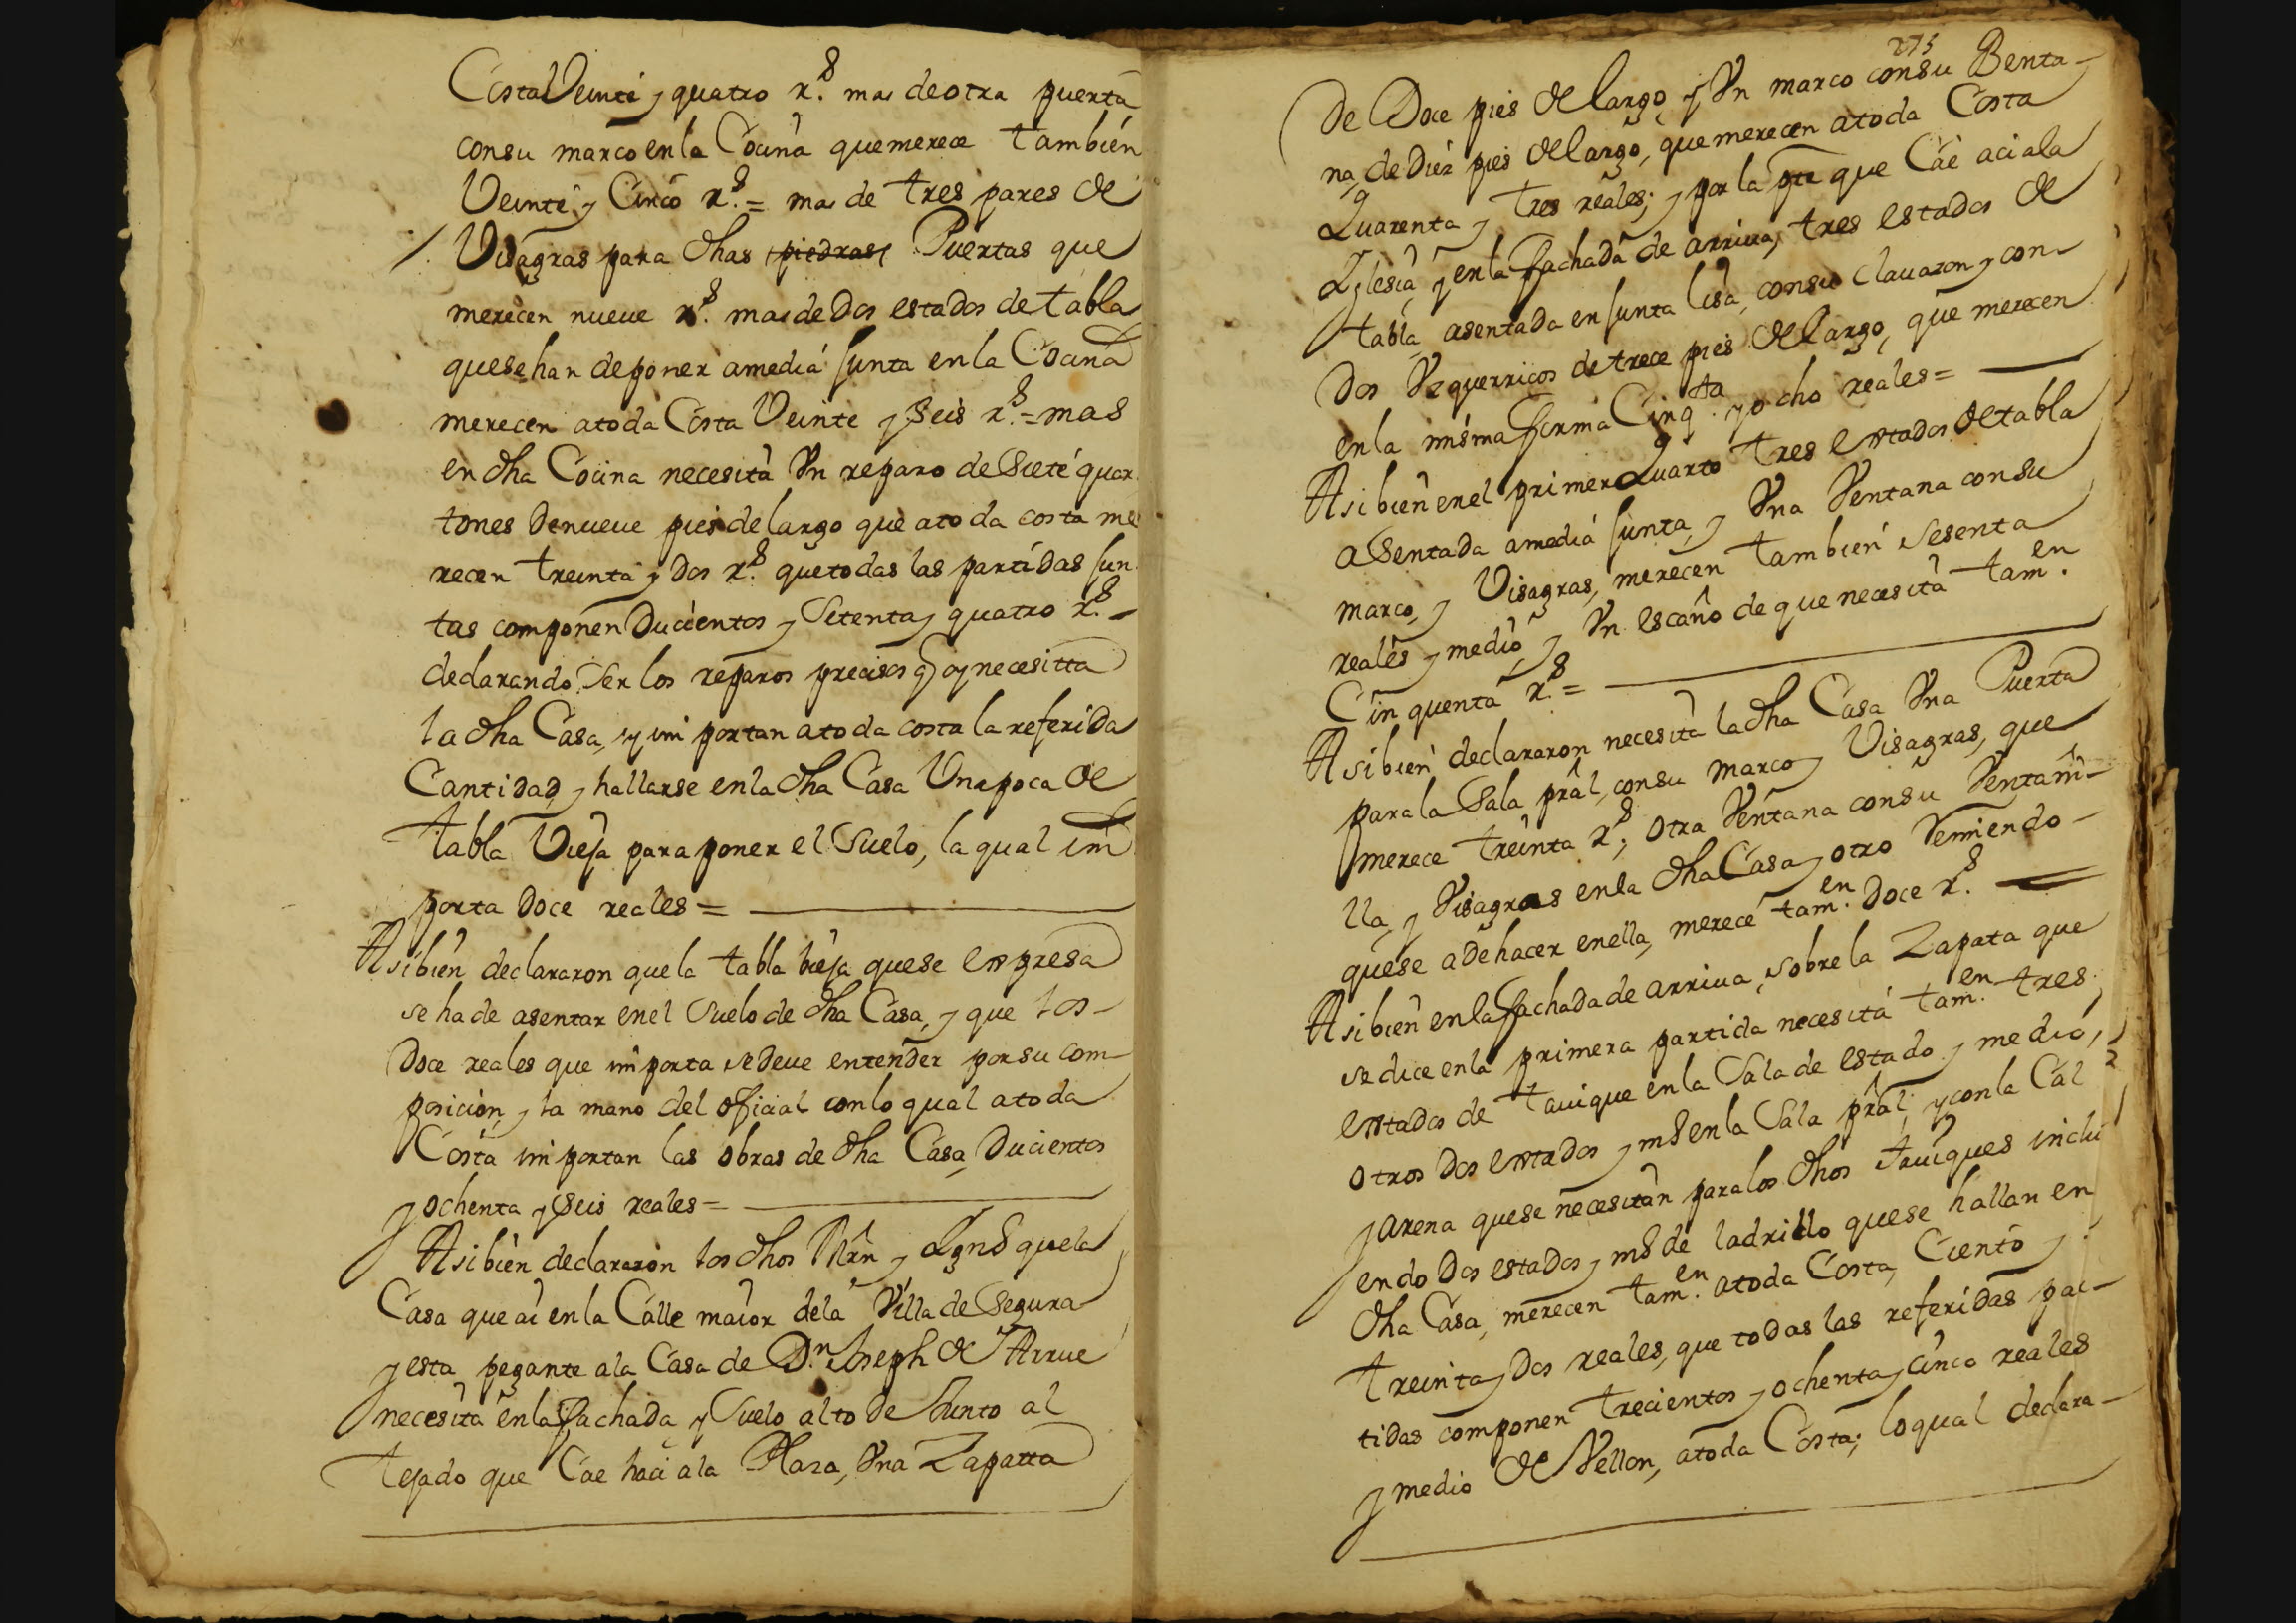 Costa Veinte y quatro r.s mas de otra puerta
con su marco en la Cocina que merece tambien
Veinte y Cinco r.s = mas de tres pares de
Visagras para dhas piedras Puertas que
merecen nueue r.s mas de dos estados de tabla
que se han de poner a media Junta en la Cocina
merecen a toda Costa Veinte y Seis r.s = mas
en dha Cocina necesita Vn reparo de Siete quar
tones de nueue pies de largo que a toda costa me
recen treinta y dos r.s que todas las partidas Jun
tas componen Ducientos y Setenta y quatro r.s -
declarando Ser los reparos precisos q oy necesitta
la dha Casa, y importan a toda costa la referida
Cantidad, y hallarse en la dha Casa Una poca de
tabla Vieja para poner el Suelo, la qual im
porta Doce reales =
Asibien declararon que la tabla bieja que se expresa
se ha de asentar en el Suelo de dha Casa, y que los -
Doce reales que importa se deue entender por su com-
posicion, y la mano del oficial con lo qual a toda
Costa importan las obras de dha Casa, Ducientos
y ochenta y Seis reales =
Asibien declararon los dhos Mrn y Ygn.o que la
Casa que ai en la Calle maior de la Villa de Segura
y esta pegante a la Casa de D.n Joseph de Arrue
necesita en la fachada, y Suelo alto de Junto al
tejado que Cae haci a la Plaza, Vna Zapatta
275
De Doce pies de largo, y Vn marco con su Benta-
na, de Diez pies de largo, que merecen a toda Costa
Quarenta y tres reales; y por la pte que Cae aci a la
Yglesia, y en la fachada de arriua, tres estados de
tabla asentada en Junta lisa, con su Clauazon, y con -
Dos Vzquerricos de trece pies de largo, que merecen
en la misma forma Cinq.ta y ocho reales =
Asibien en el primer Quarto tres estados de tabla
asentada a media Junta, y Vna Ventana con su
marco, y Visagras, merecen tambien Sesenta
reales y medio, y Vn escaño de que necesita tam.en
Cinquenta r.s =
Asibien declararon necesita la dha Casa Vna Puerta
para la Sala pral, con su marco y Visagras, que
merece treinta r.s; otra Ventana con su Ventani-
lla, y Visagras en la dha Casa y otro Remiendo -
que se a de hacer en ella, merece tam.en Doce r.s
Asibien en la fachada de arriua, sobre la Zapata que
se dice en la primera partida necesita tam.en tres
estados de tauique en la Sala de estado y medio,
otros Dos estados y m.o en la Sala pral; y con la Cal
y arena que se necesitan para los dhos tauiques inclu
endo Dos estados y m.o de ladrillo que se hallan en
dha Casa, merecen tam.en a toda Costa, Ciento y
treinta y Dos reales, que todas las referidas par-
tidas componen trecientos y ochenta y cinco reales
y medio de Vellon, a toda Costa; lo qual declara-